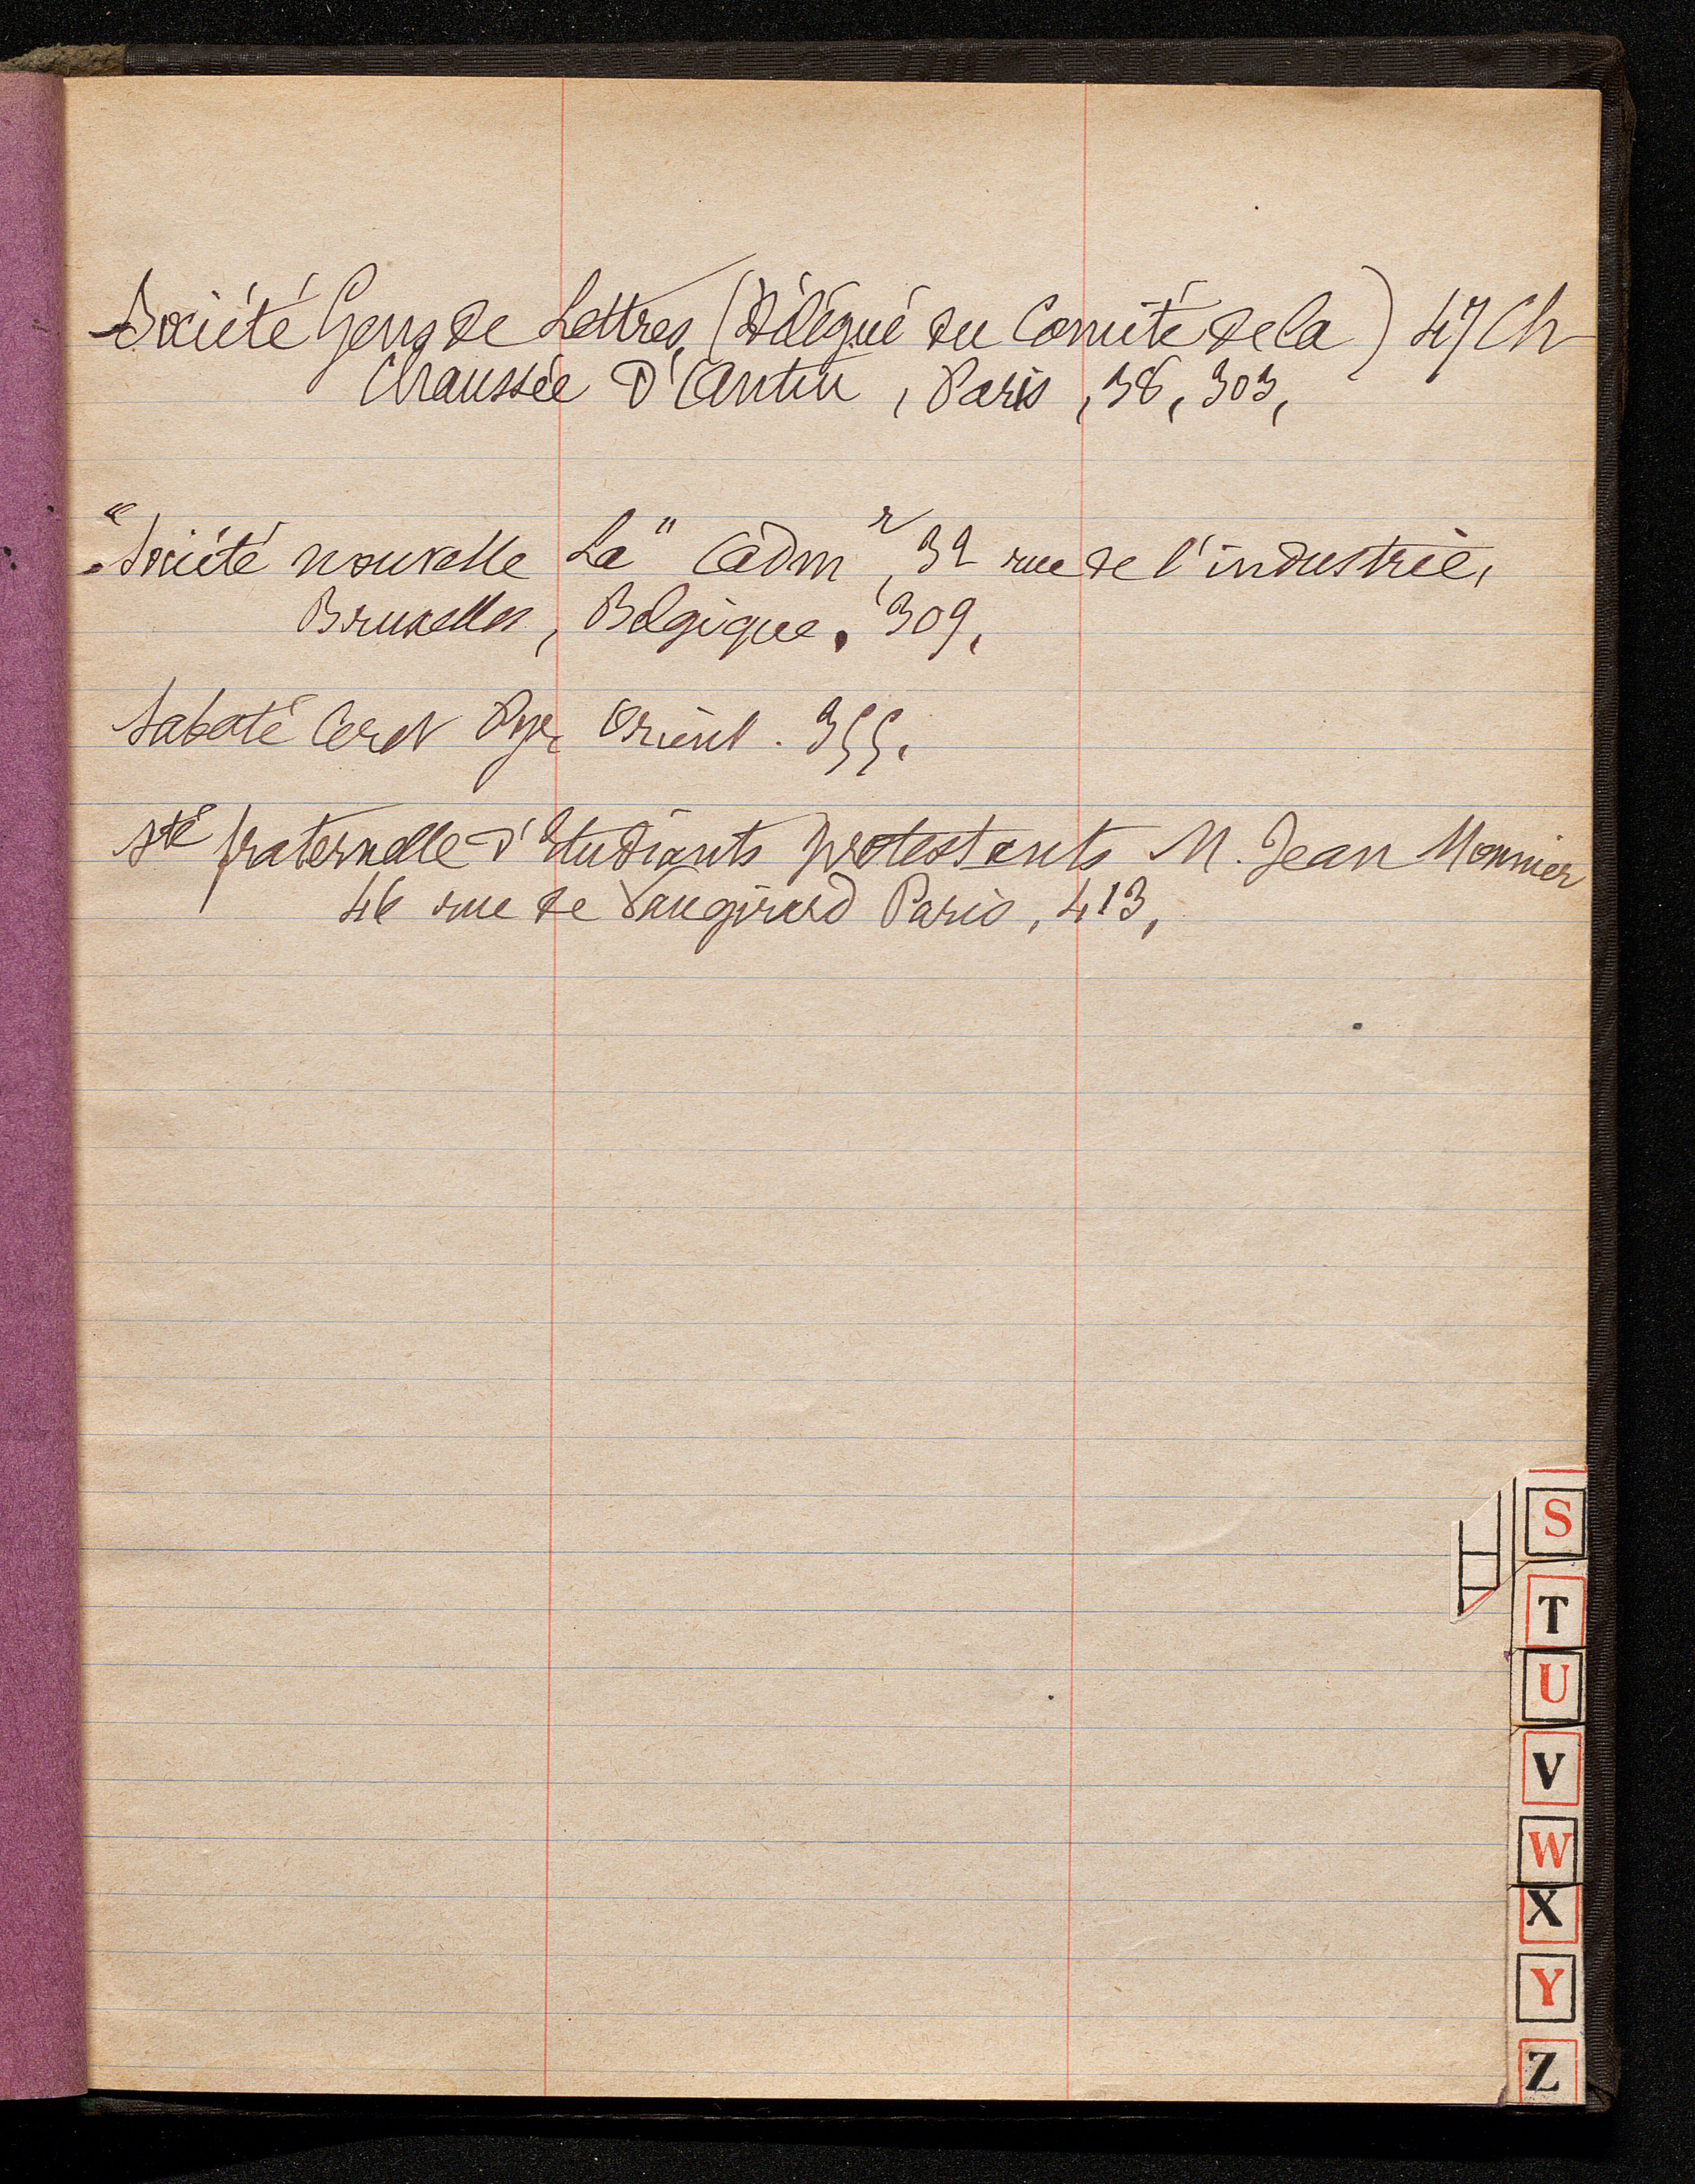 Société Gens de Lettres, (Délégué du Comité de la) 47 Ch
Chaussée d'Antin, Paris, 38, 303,
"Société nouvelle La" adm r, 32 rue de l'industrie,
Bruxelles, Belgique. 309,
Sabaté Ceret Pyr. Orient. 355.
Sté fraternelle d'Etudiants protestants M. Jean Monnier
46 rue de Vaugirard Paris, 413,
S
T
U
V
W
X
Y
Z